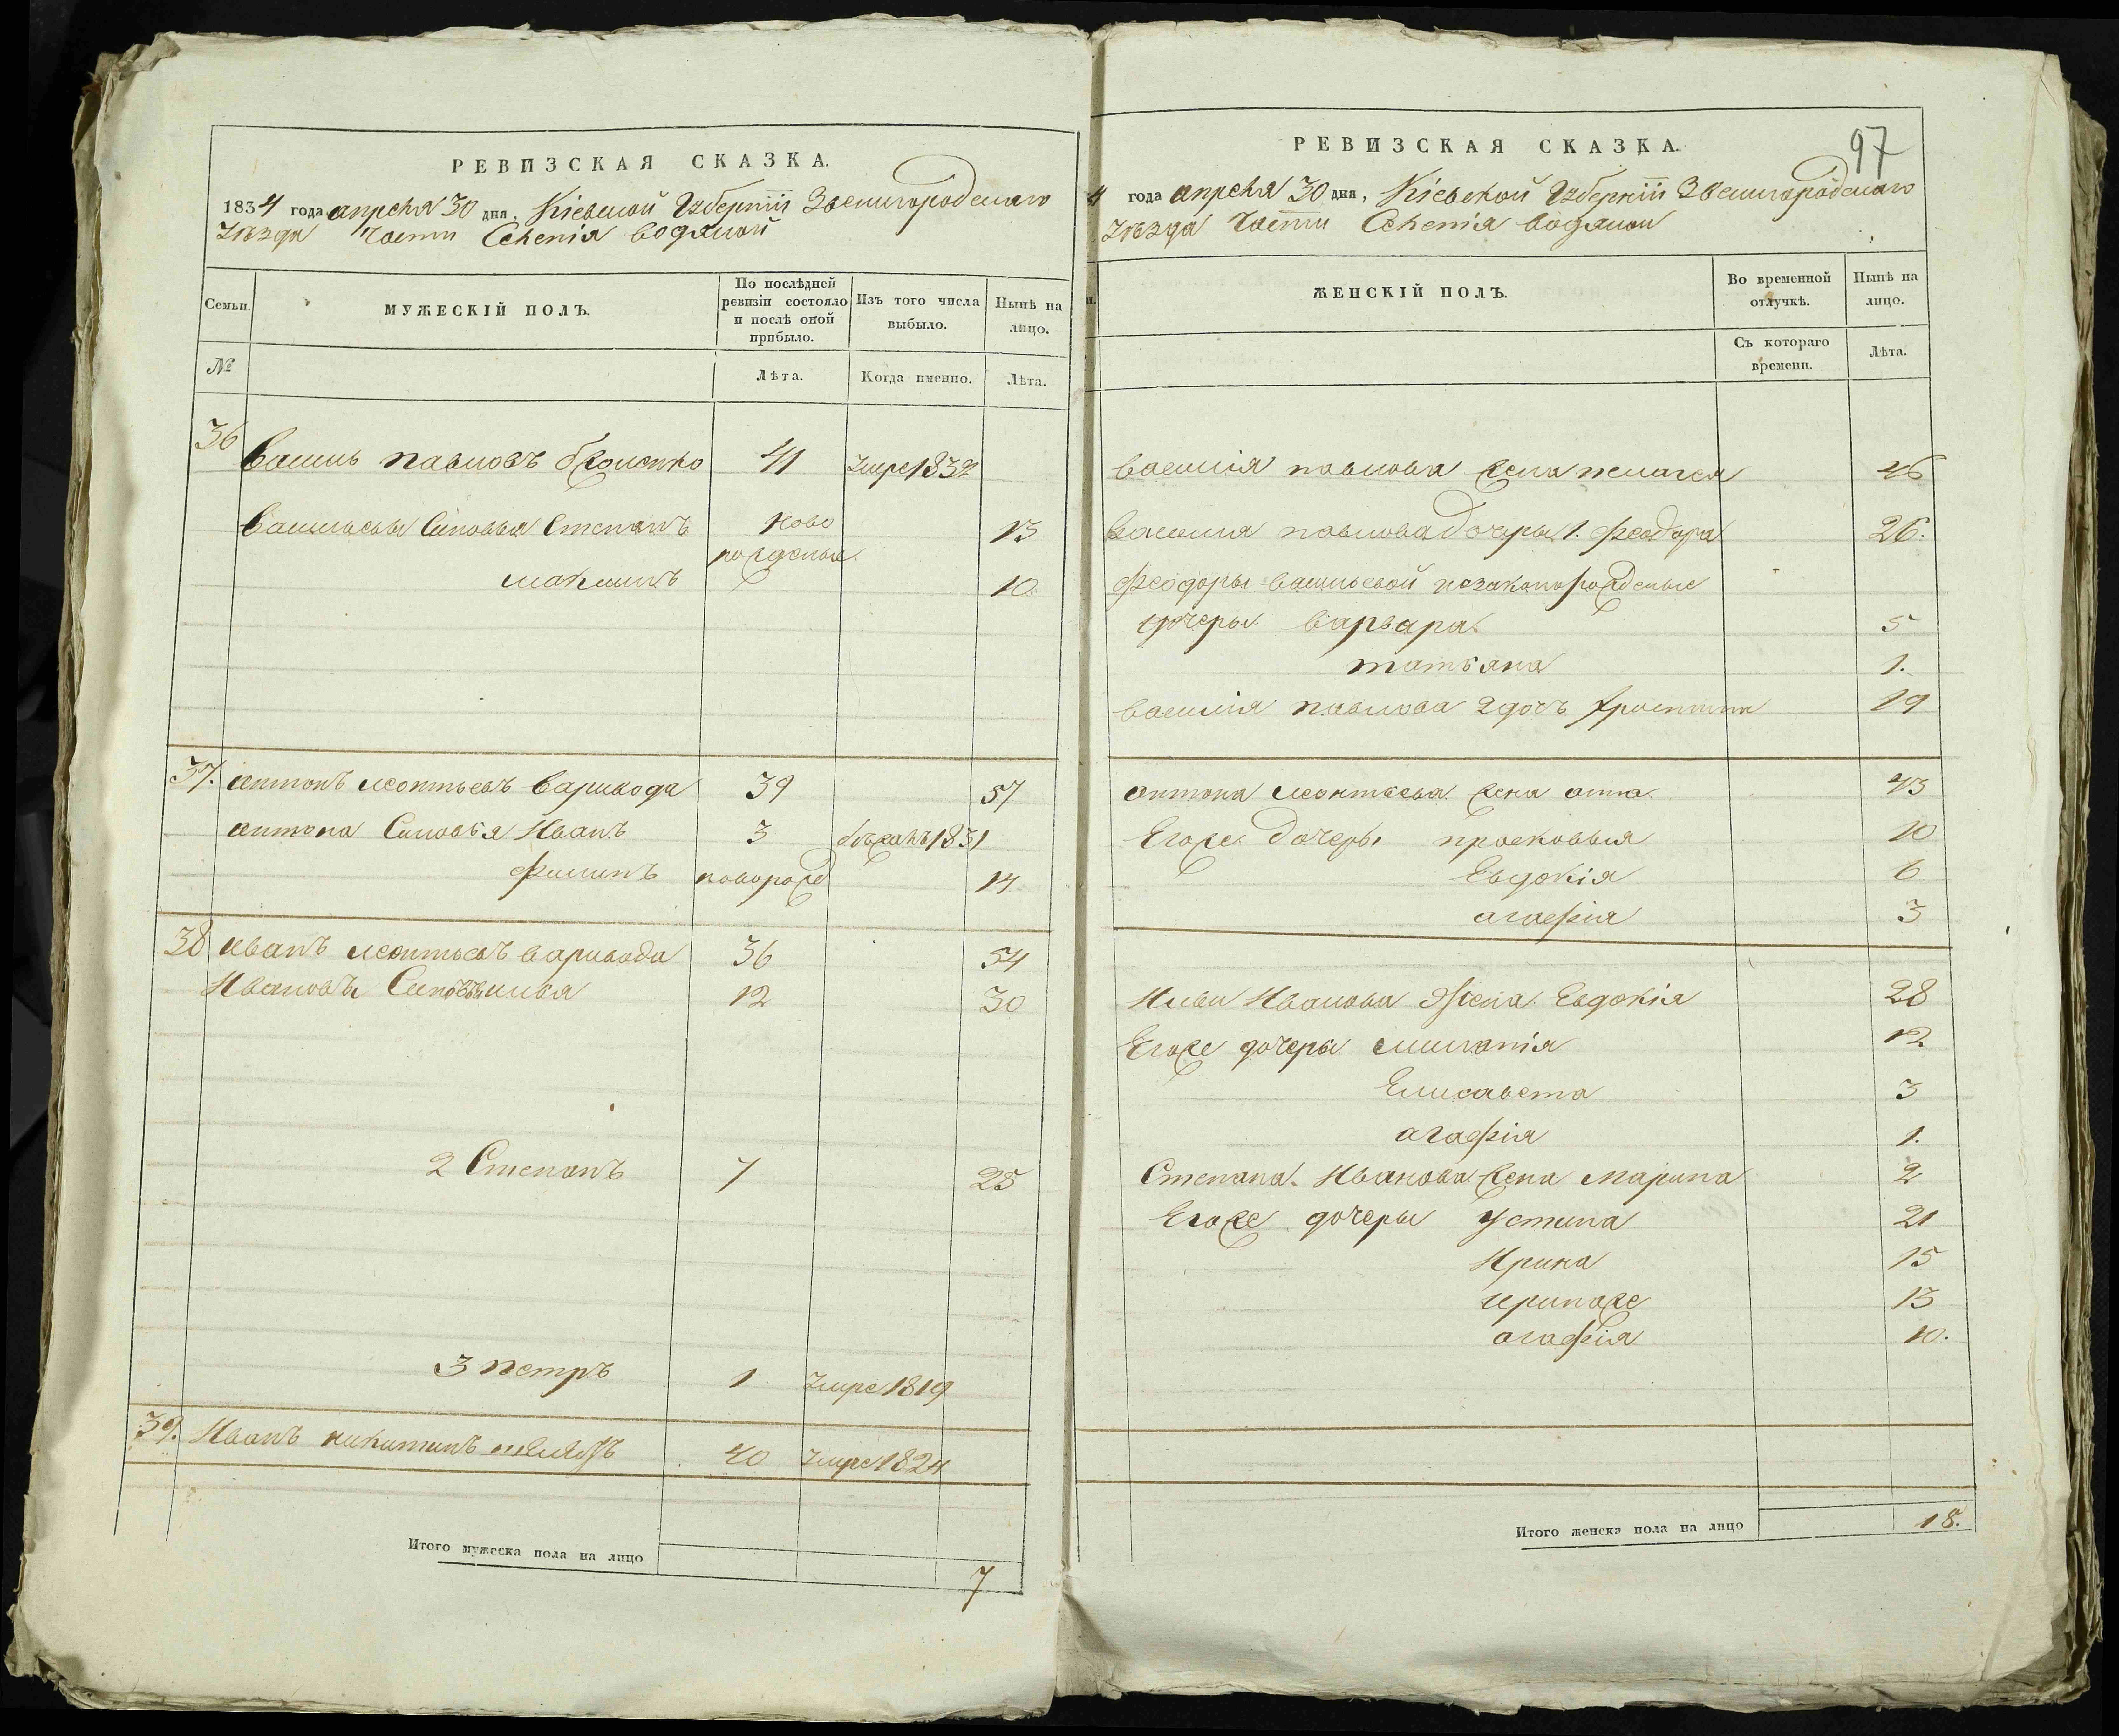 РЕВИЗСКАЯ СКАЗКА.
1834 года апреля 30 дня, Кіевской Губерніи Звенигородскаго
Уѣзда части Селенія водяной
Семьи.
МУЖЕСКІЙ ПОЛЪ.
По послѣдней
ревизіи состояло
и послѣ оной
прибыло.
Изъ того числа
выбыло.
Нынѣ на
лицо.
№
Лѣта.
Когда именно.
Лѣта.
36
Василь павловъ 41 Умре 1832
Васильевы Синовья Степанъ Ново 13
рожденые
максимъ 10
37. антонъ леонтьевъ варивода 39 57
антона Синовья Иванъ 3 бѣжалъ 1831
Филипъ новорож 14
38 иванъ леонтьевъ варивода 36 54
Ивановы 12 30
2 Степанъ 7 25
3 петръ 1 Умре 1819
39. Иванъ никитинъ 40 Умре 1824
Итого мужеска пола на лицо 7
97
РЕВИЗСКАЯ СКАЗКА.
4 года апреля 30 дня, Кіевской Губерніи Звенигородскаго
Уѣзда части Селенія водяной
ЖЕНСКІЙ ПОЛЪ.
Во временной
отлучкѣ.
Нынѣ на
лицо.
Съ котораго
времени.
Лѣта.
василія павлова жена пелагея 46
василия павлова дочеры 1. феодора 26.
феодоры васильевой незаконорожденые
дочеры варвара 5
татьяна 1.
василия павлова 2 дочъ христина 19
антона леонтьева жена анна 43
Егоже дочеры прасковья 10
Евдокія 6
агафия 3
Ильи Иванова Жена Евдокія 28
Егоже дочеры 12
Елисавета 3
агафія 1.
Степана Иванова жена марина 2
Егоже дочеры Устина 21
Ирина 15
13
агафія 10.
Итого женска пола на лицо 18.